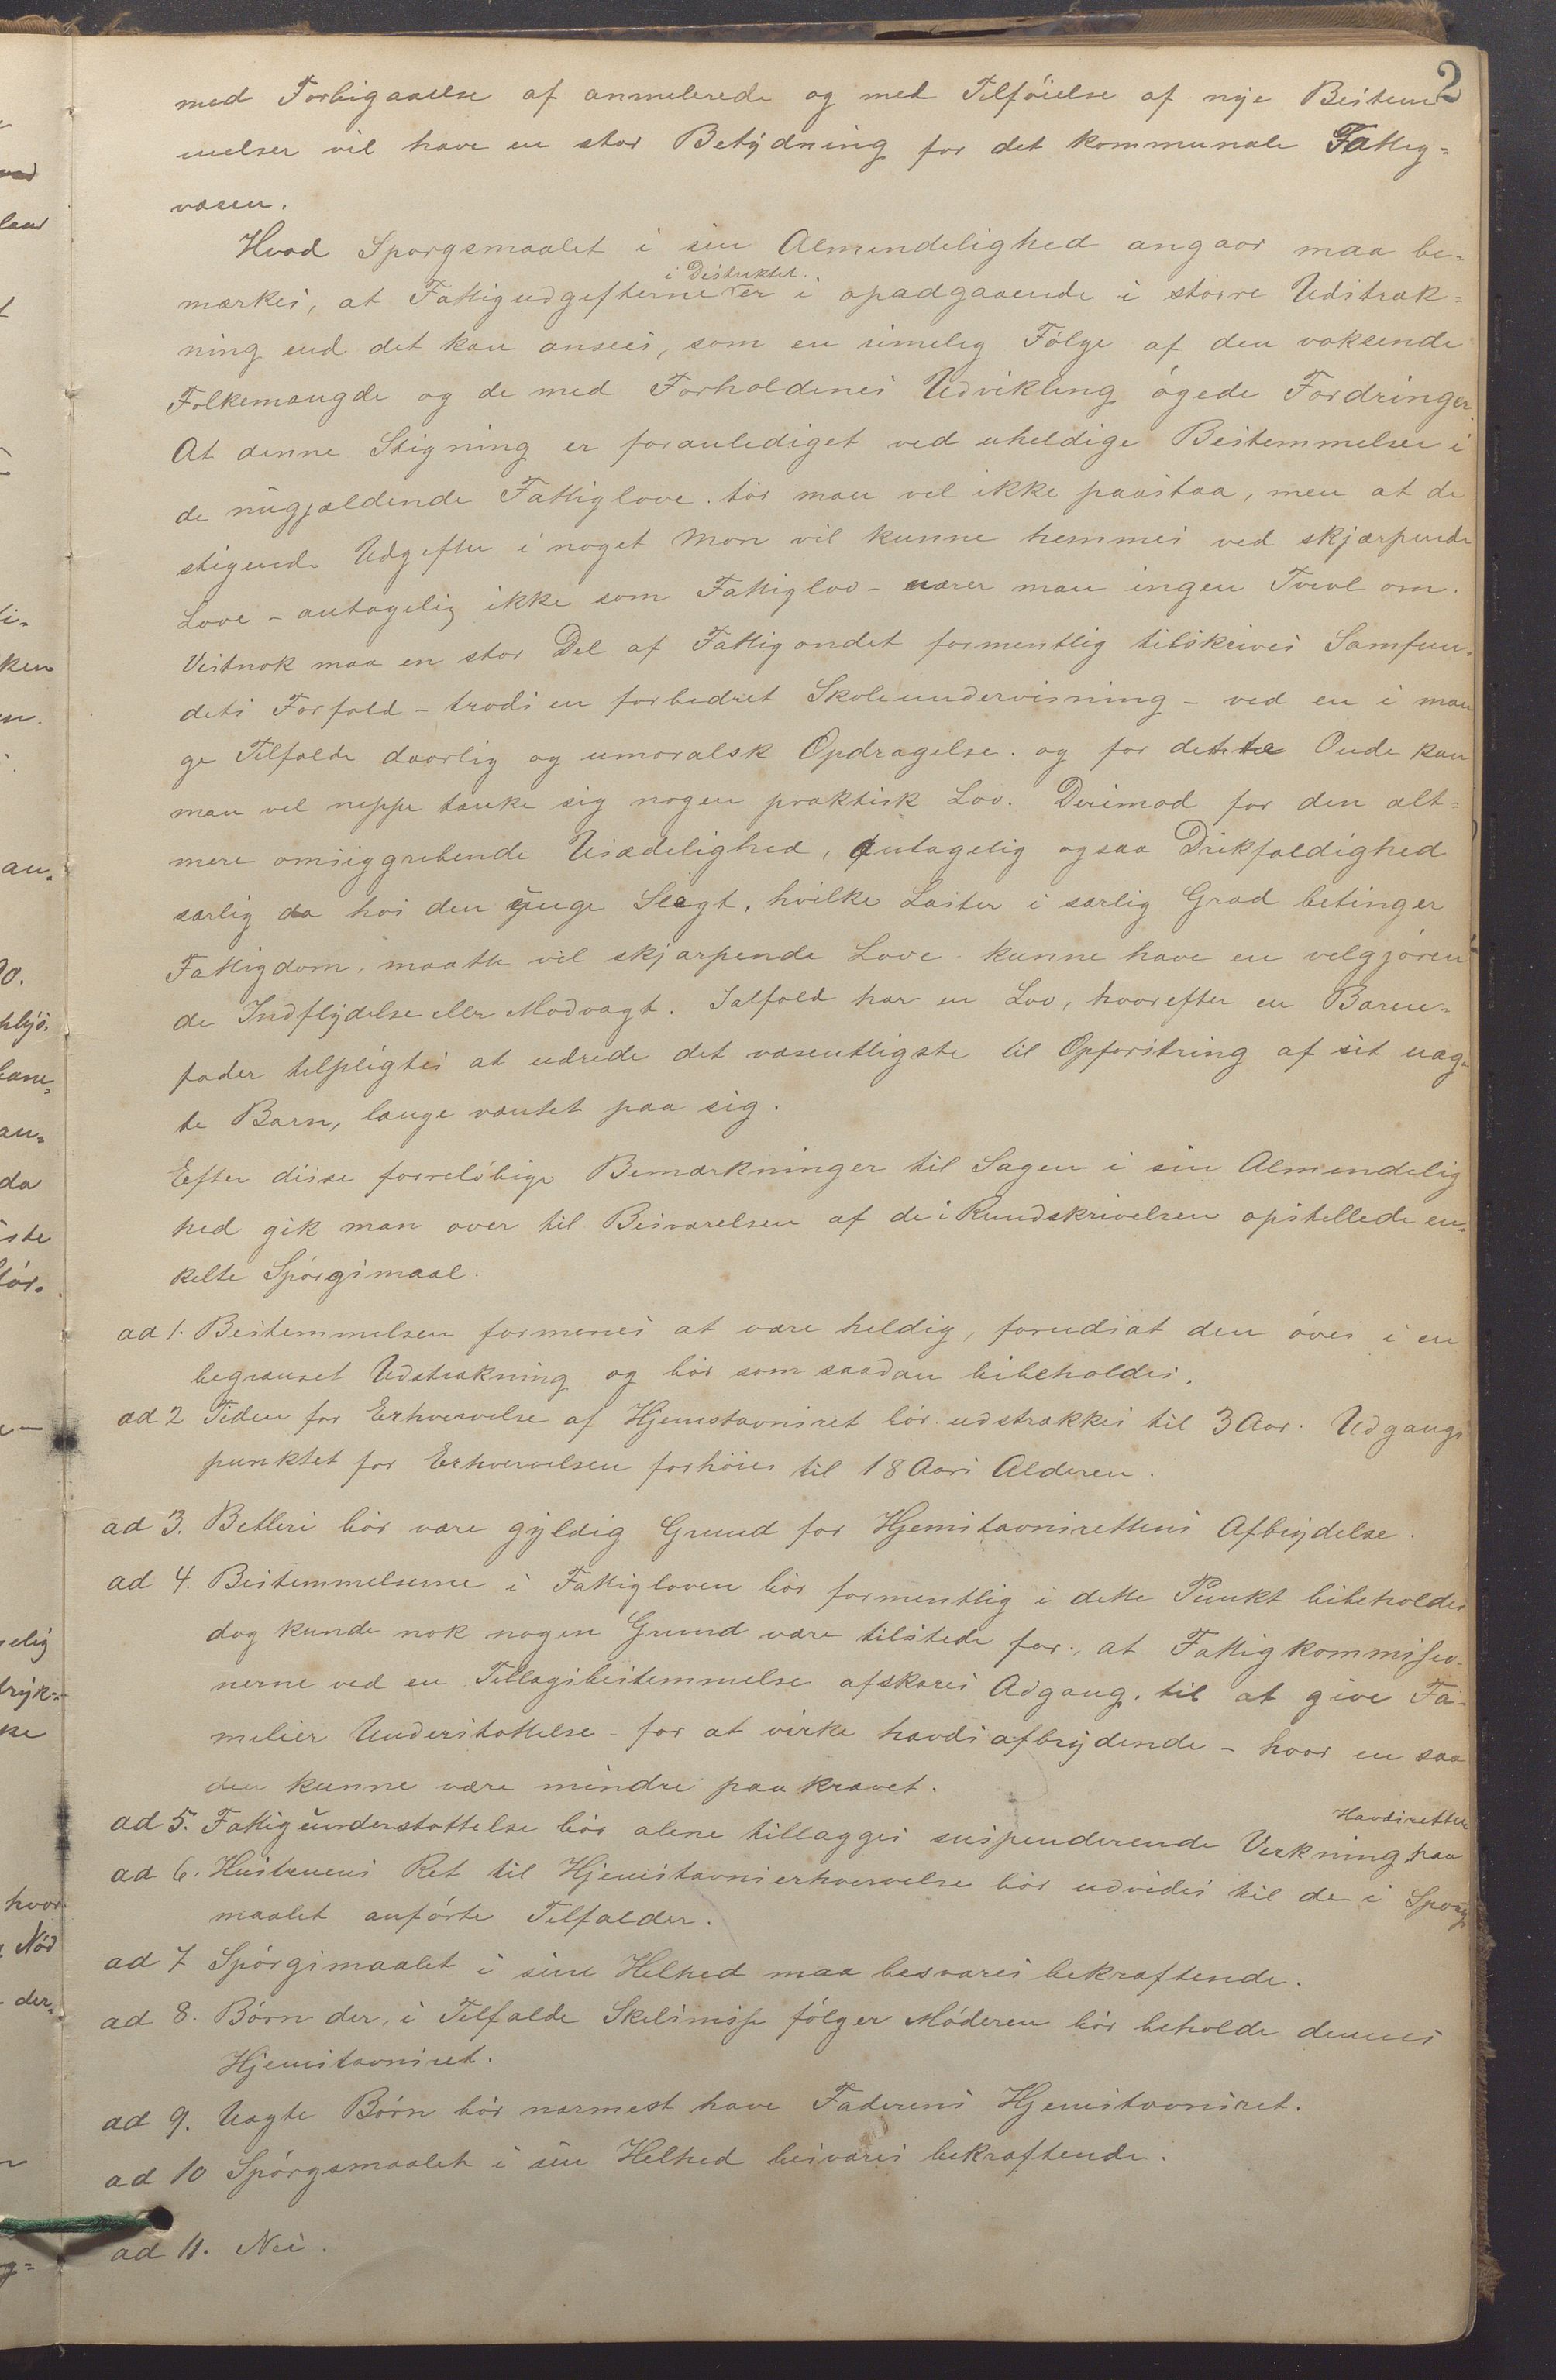 2
med Forbigaaelse af anmelerede og med Tilføielse af nye Bestem
melser vil have en stor Betydning for det kommunale Fattig=
væsen.
Hvad Spørgsmaalet i sin Almindelighed angaar maa be=
mærkes, at Fattigudgifterne i Distriktet er i opadgaaende i større Udstræk=
ning end det kan ansees, som en rimelig Følge af den voksende
Folkemængde og de med Forholdenes Udvikling øgede Fordringer.
At denne Stigning er foranlediget ved uheldige Bestemmelser i
de nugjældende Fattiglove tør man vel ikke paastaa, men at de
stigende Udgifter i noget Mon vil kunne hemmes ved skjærpende
Love - antagelig ikke som Fattiglov - nærer man ingen Tvivl om.
Vistnok maa en stor Del af Fattigondet formentlig tilskrives Samfun=
dets Forfald - trods en forbedret Skoleundervisning - ved en i man
ge Tilfælde daarlig og umoralsk Opdragelse. og for dette Onde kan
man vel neppe tænke sig nogen praktisk Lov. Derimod for den alt=
mere omsiggribende Usædelighed, antagelig ogsaa Drikfældighed
særlig da hos den unge Slegt, hvilke Laster i særlig Grad betinger
Fattigdom, maatte vel skjærpende Love kunne have en velgjøren=
de Indflydelse eller Modvægt. Ialfald har en Lov, hvorefter en Barne=
fader tilpligtes at udrede det væsentligste til Opfostring af sit uæg=
te Barn, længe ventet paa sig.
Efter disse forreløbige Bemærkninger til Sagen i sin Almindelig
hed gik man over til Besvarelsen af de i Rundskrivelsen opstillede en=
kelte Spørgsmaal.
ad 1. Bestemmelsen formenes at være heldig, forudsat den øves i en
begrænset Udstrækning og bør som saadan bibeholdes.
ad 2 Tiden for Erhvervelse af Hjemstavnsret bør udstrækkes til 3 Aar. Udgangs
punktet for Erhvervelsen forhøies til 18 Aars Alderen.
ad 3. Betleri bør være gyldig Grund for Hjemstavnsrettens Afbrydelse.
ad 4. Bestemmelserne i Fattigloven bør formentlig i dette Punkt bibeholdes
dog kunde nok nogen Grund være tilstede for, at Fattigkommissio=
nerne ved en Tillægsbestemmelse afskares Adgang til at give Fa=
milier Understøttelse - for at virke hævdsafbrydende - hvor en saa
dan kunne være mindre paakrævet.
ad 5. Fattigunderstøttelse bør alene tillægges suspenderende Virkning paa Hævdsretten
ad 6. Hustruens Ret til Hjemstavnserhvervelse bør udvides til de i Spørgs
maalet anførte Tilfælder.
ad 7 Spørgsmaalet i sine Helhed maa besvares bekræftende.
ad 8. Børn der, i Tilfælde Skilsmisse følger Moderen bør beholde dennes
Hjemstavnsret.
ad 9. Uægte Børn bør nærmest have Faderens Hjemstavnsret.
ad 10 Spørgsmaalet i sin Helhed besvares bekræftende.
ad 11. Nei.